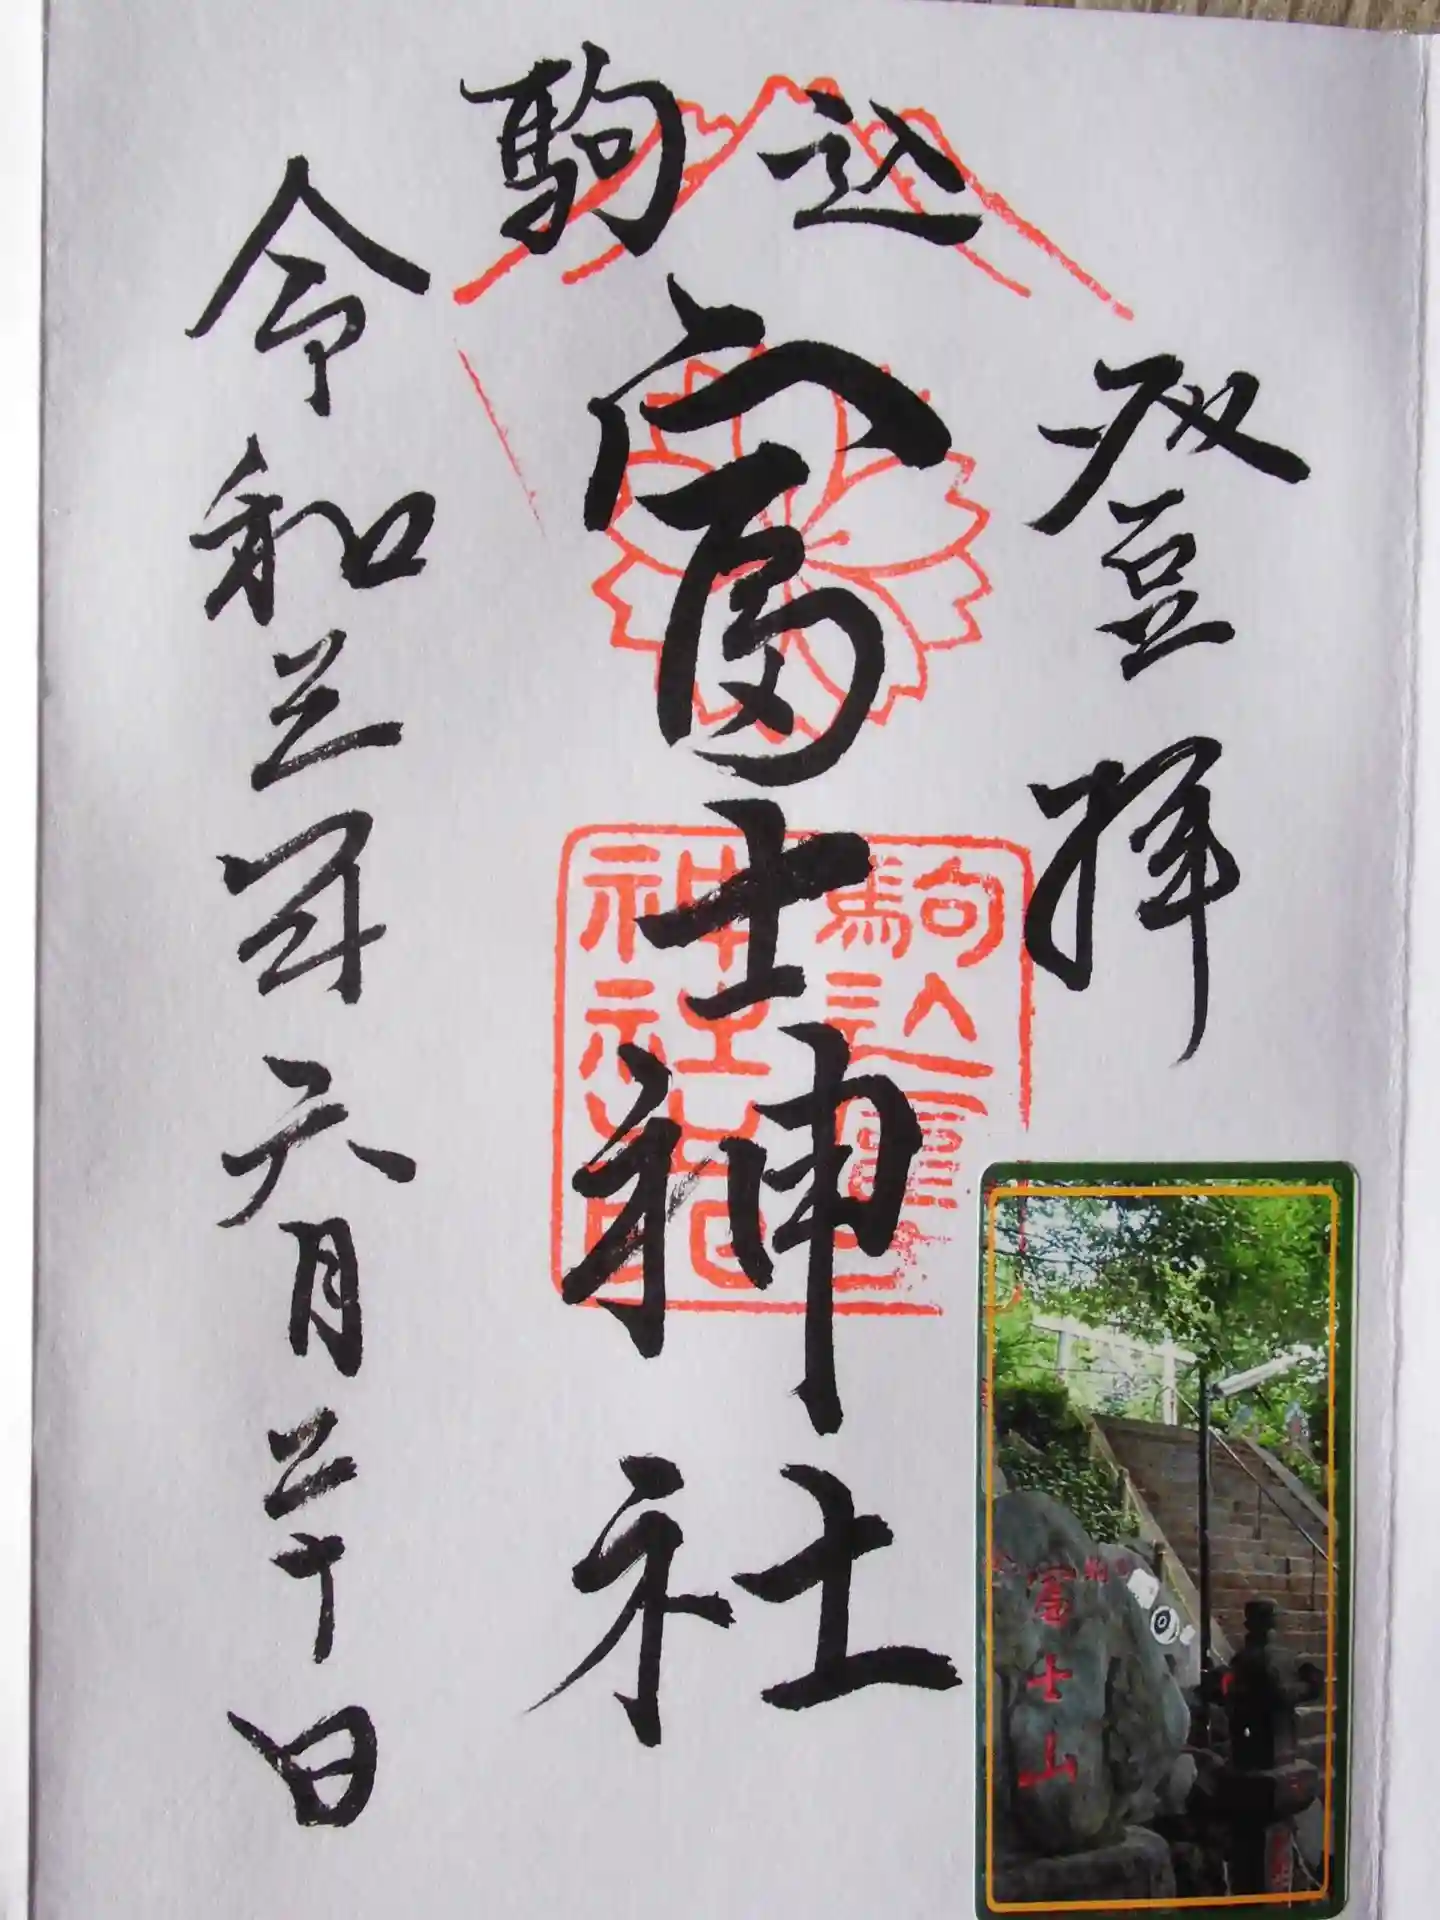 登拝
駒込
富士神社
令和三年六月三十日
駒込富
神社
富士山